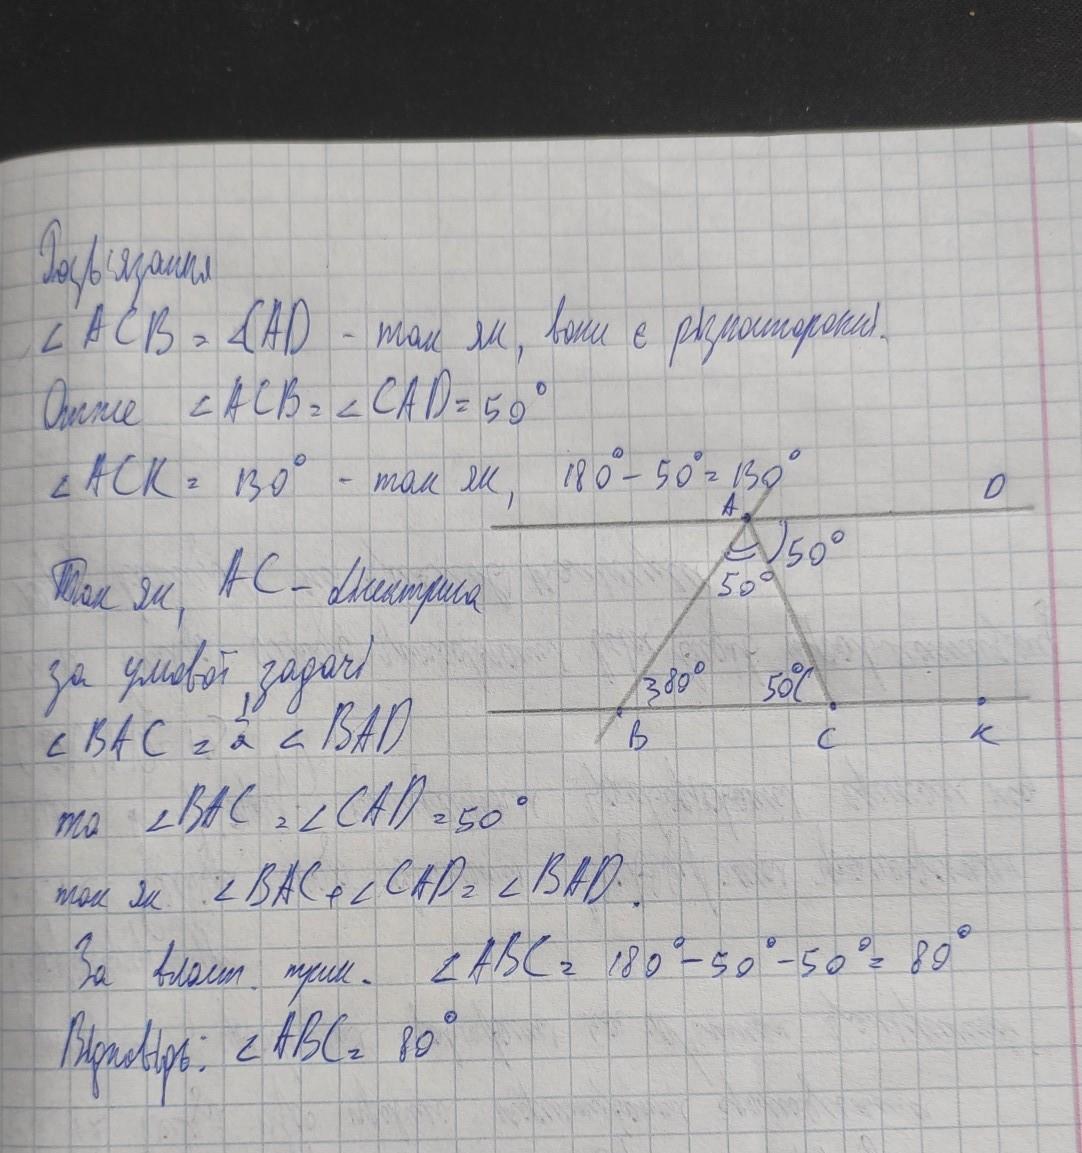 Розв'язання
∠ACB = ∠CAD - так як, вони є різносторонні.
Отже ∠ACB = ∠CAD = 50°
∠ACK = 130° - так як, 180° - 50° = 130°
Так як, AC - бісектриса
за умовой задачі
∠BAC = 1/2 ∠BAD
то ∠BAC = ∠CAD = 50°
так як ∠BAC + ∠CAD = ∠BAD.
За власт. трик. ∠ABC = 180° - 50° - 50° = 80°
Відповідь: ∠ABC = 80°
A
D
50°
50°
80°
50°
B
C
K